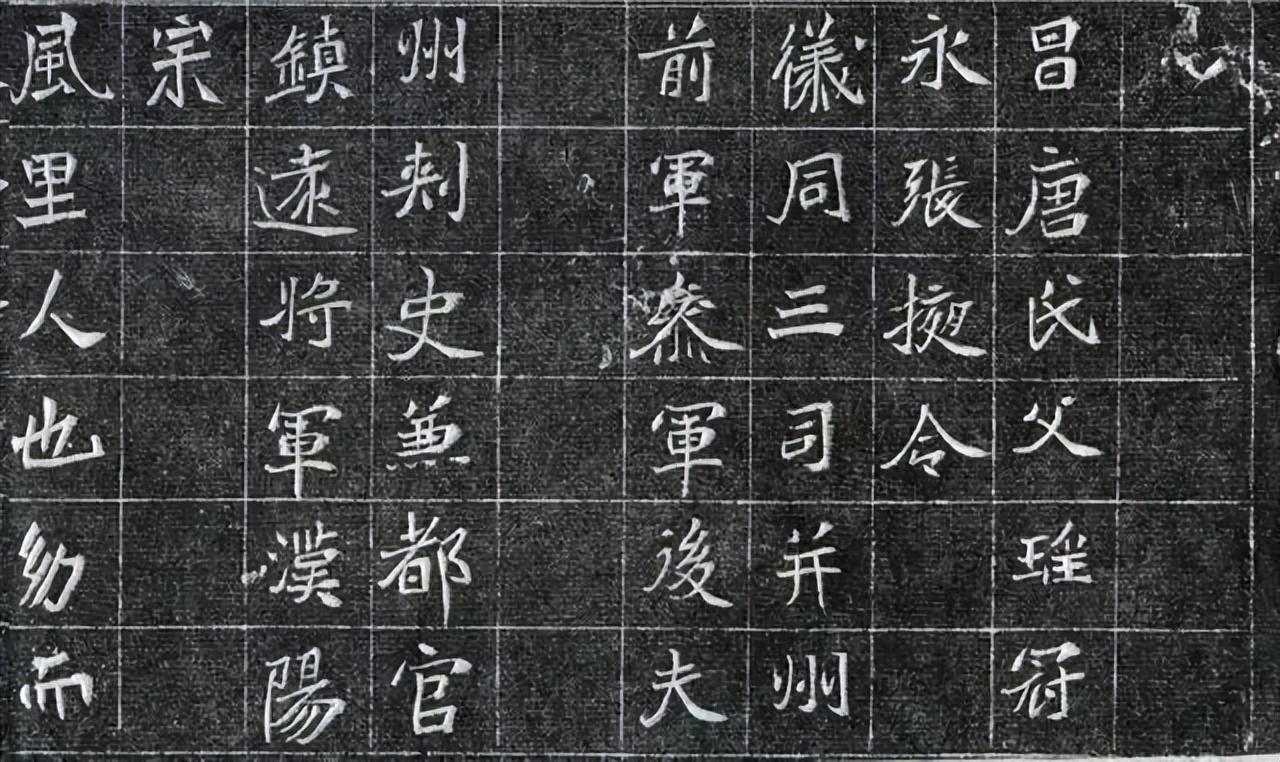 昌唐氏父瑶冠
永張掖令
儀同三司并州
前軍叅軍後夫
州刺史蒹都官
鎮遠将軍漢陽
宗
風里人也幼而